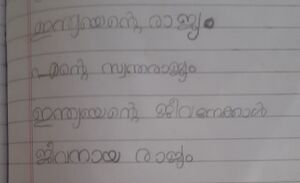 ഇന്ത്യയെന്റെ രാജ്യം
എന്റെ സ്വന്തരാജ്യം
ഇന്ത്യയെന്റെ ജീവനേക്കാൾ
ജീവനായ രാജ്യം